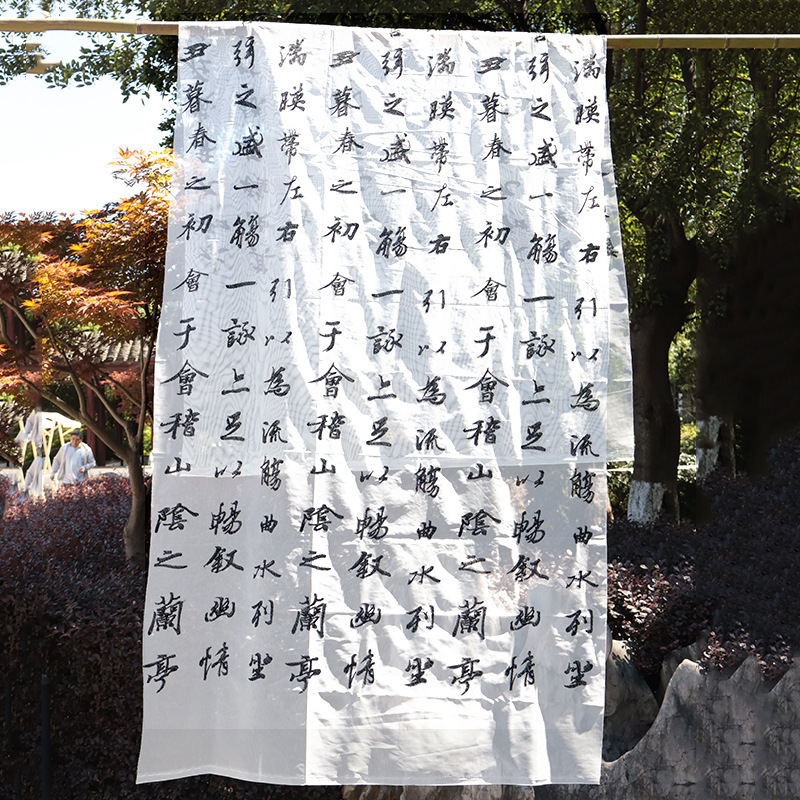 湍暎帶左右引以為流觴曲水列坐
弦之盛一觴一詠亦足以暢叙幽情
丑暮春之初會于會稽山陰之蘭亭
湍暎帶左右引以為流觴曲水列坐
弦之盛一觴一詠亦足以暢叙幽情
丑暮春之初會于會稽山陰之蘭亭
湍暎帶左右引以為流觴曲水列坐
弦之盛一觴一詠亦足以暢叙幽情
丑暮春之初會于會稽山陰之蘭亭